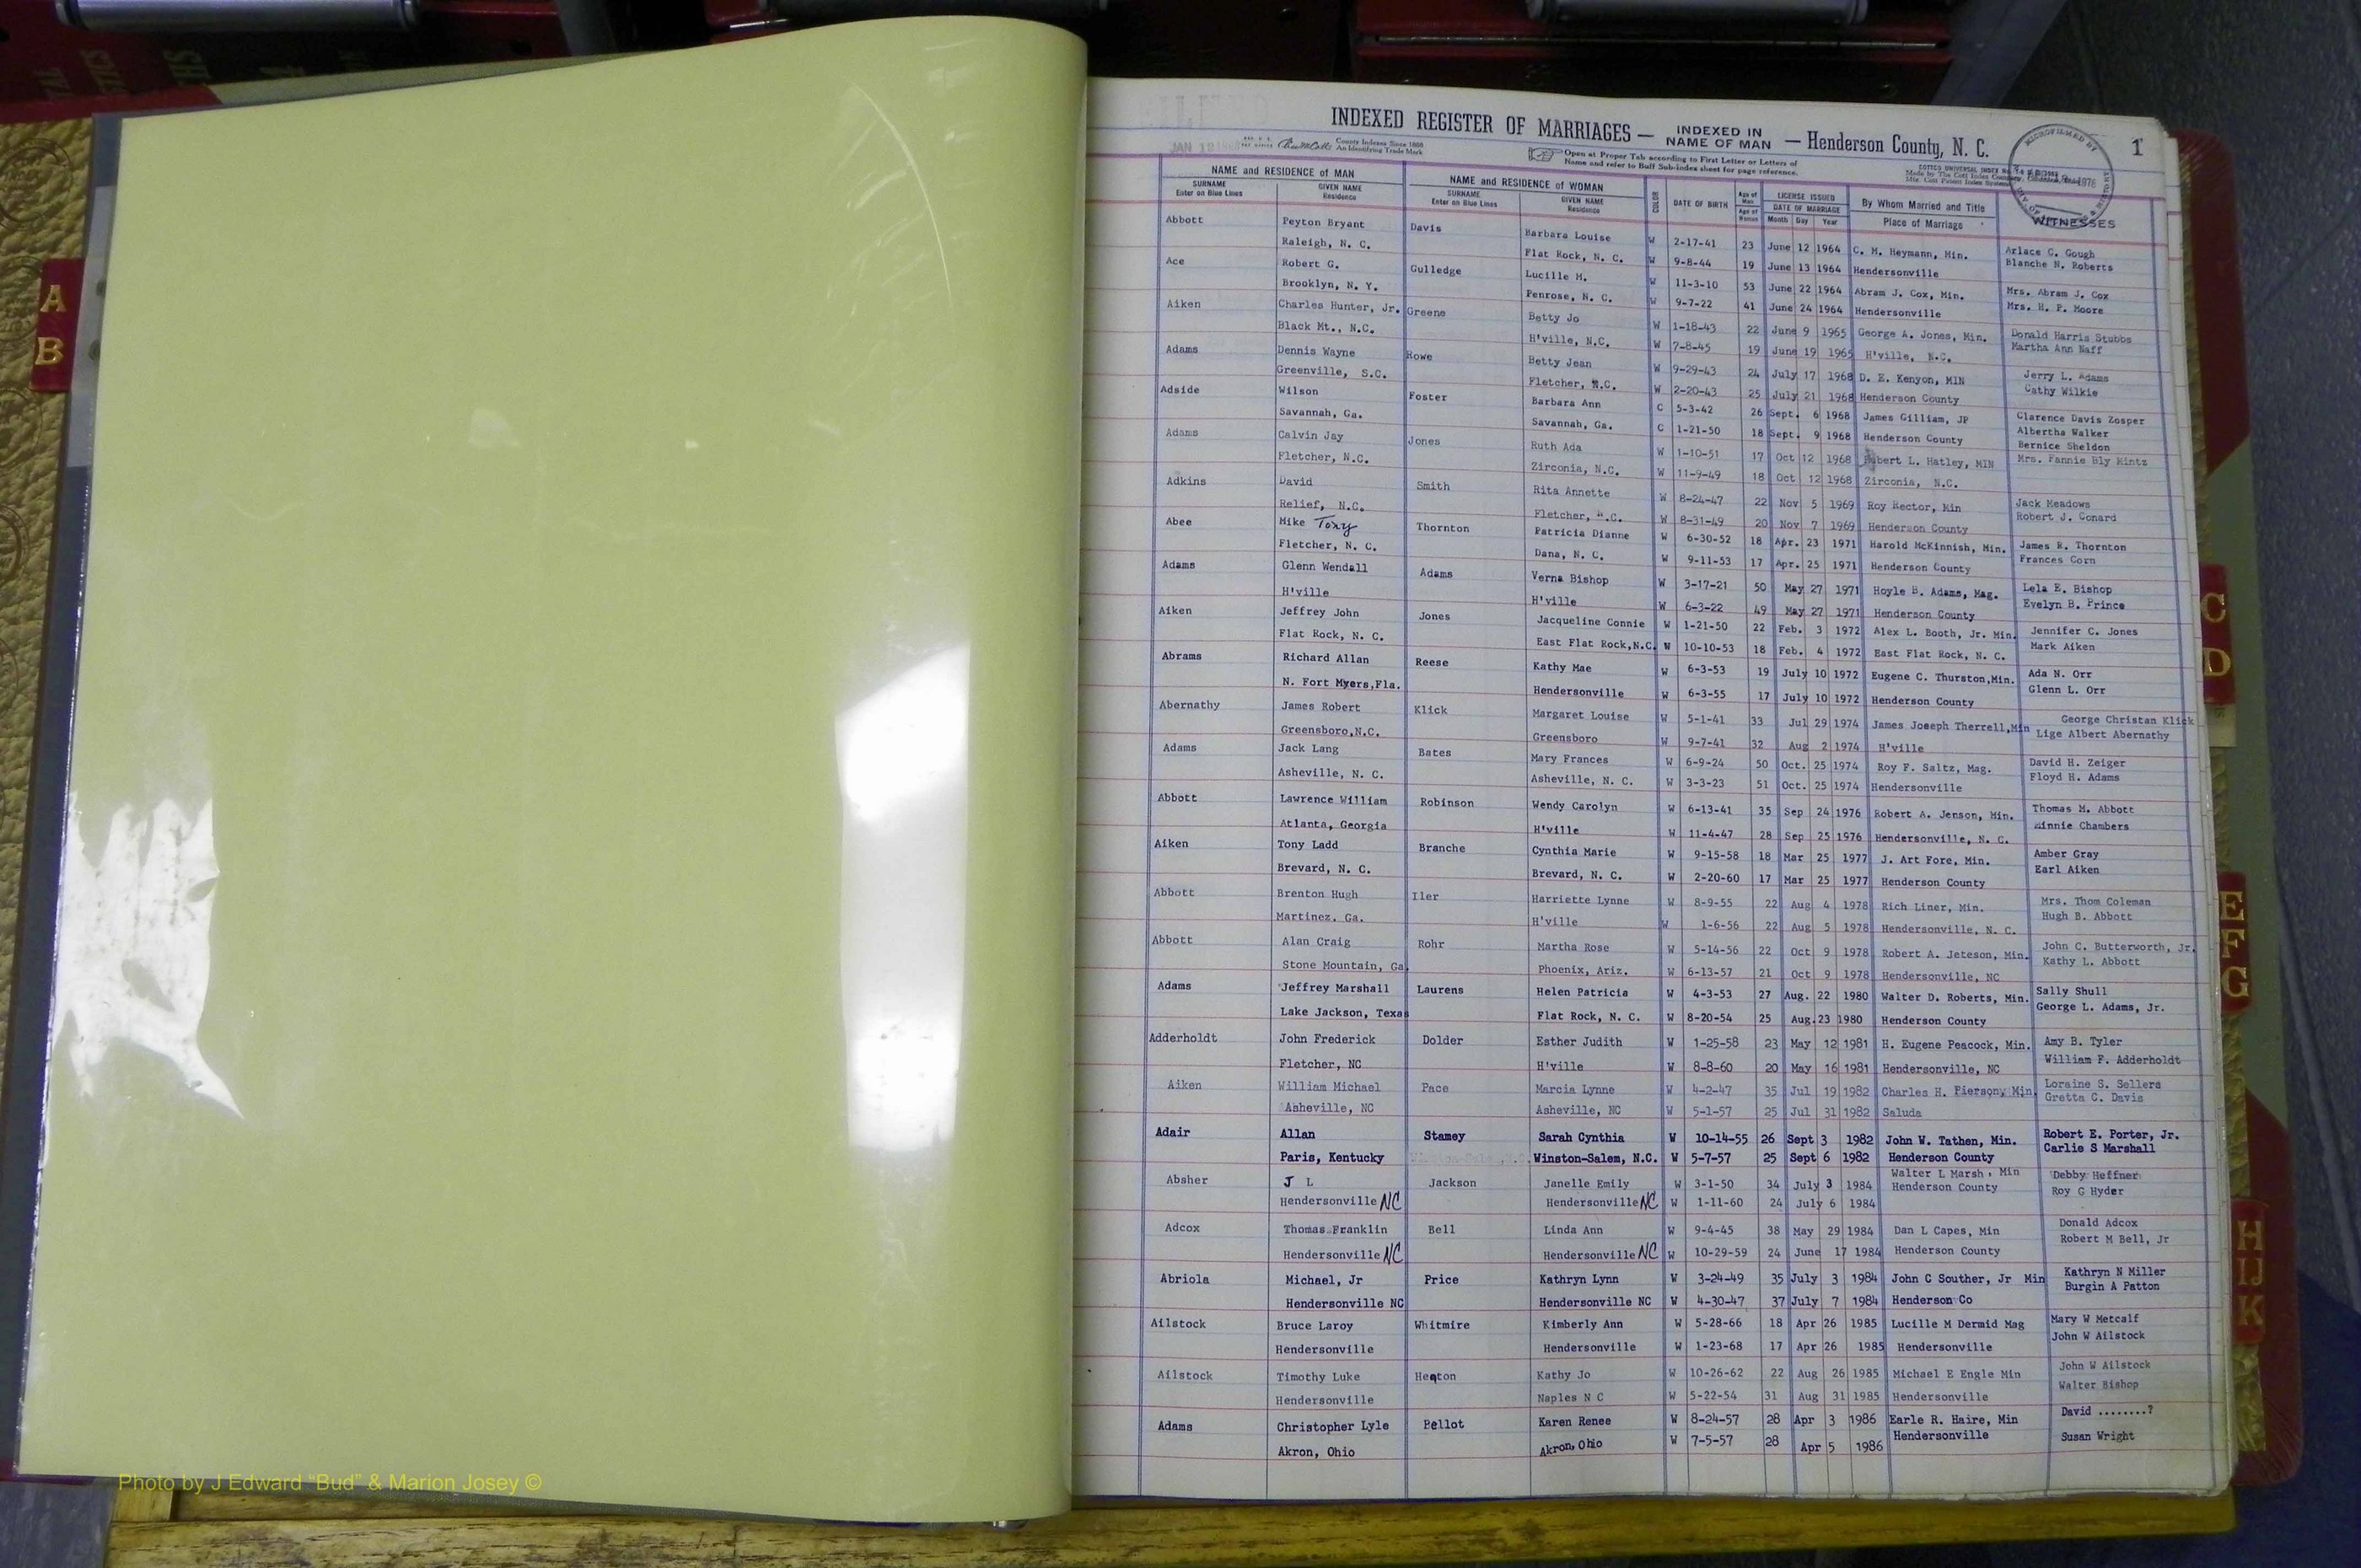 INDEXED REGISTER OF MARRIAGES — INDEXED IN NAME OF MAN — Henderson County, N. C.
1
County Indexes Since 1888
An Identifying Trade Mark
Open at Proper Tab according to First Letter or Letters of
Name and refer to Buff Sub-index sheet for page reference.
MICROFILMED BY
1978
NAME and RESIDENCE OF MAN NAME and RESIDENCE OF WOMAN COLOR DATE OF BIRTH Age of Man Age of Woman LICENSE ISSUED DATE OF MARRIAGE By Whom Married and Title WITNESSES
SURNAME Enter on Blue Lines GIVEN NAME Residence SURNAME Enter on Blue Lines GIVEN NAME Residence Month Day Year Place of Marriage
Abbott Peyton Bryant Davis Barbara Louise W 2-17-41 23 June 12 1964 C. M. Heymann, Min. Arlace C. Gough
Raleigh, N. C. Flat Rock, N. C. W 9-8-44 19 June 13 1964 Hendersonville Blanche N. Roberts
Ace Robert G. Gulledge Lucille M. W 11-3-10 53 June 22 1964 Abram J. Cox, Min. Mrs. Abram J. Cox
Brooklyn, N. Y. Penrose, N. C. W 9-7-22 41 June 24 1964 Hendersonville Mrs. H. P. Moore
Aiken Charles Hunter, Jr. Greene Betty Jo W 1-18-43 22 June 9 1965 George A. Jones, Min. Donald Harris Stubbs
Black Mt., N.C. H'ville, N.C. W 7-8-45 19 June 19 1965 H'ville, N.C. Martha Ann Naff
Adams Dennis Wayne Rowe Betty Jean W 9-29-43 24 July 17 1968 D. E. Kenyon, MIN Jerry L. Adams
Greenville, S.C. Fletcher, N.C. W 2-20-43 25 July 21 1968 Henderson County Cathy Wilkie
Adside Wilson Foster Barbara Ann C 5-3-42 26 Sept. 6 1968 James Gilliam, JP Clarence Davis Zosper
Savannah, Ga. Savannah, Ga. C 1-21-50 18 Sept. 9 1968 Henderson County Albertha Walker
Adams Calvin Jay Jones Ruth Ada W 1-10-51 17 Oct 12 1968 Robert L. Hatley, MIN Bernice Sheldon
Fletcher, N.C. Zirconia, N.C. W 11-9-49 18 Oct 12 1968 Zirconia, N.C. Mrs. Fannie Bly Mintz
Adkins David Smith Rita Annette W 8-24-47 22 Nov 5 1969 Roy Rector, Min Jack Meadows
Relief, N.C. Fletcher, N.C. W 8-31-49 20 Nov 7 1969 Henderson County Robert J. Conard
Abee Mike Tony Thornton Patricia Dianne W 6-30-52 18 Apr. 23 1971 Harold McKinnish, Min. James R. Thornton
Fletcher, N. C. Dana, N. C. W 9-11-53 17 Apr. 25 1971 Henderson County Frances Corn
Adams Glenn Wendall Adams Verna Bishop W 3-17-21 50 May 27 1971 Hoyle B. Adams, Mag. Lela E. Bishop
H'ville H'ville W 6-3-22 49 May 27 1971 Henderson County Evelyn B. Prince
Aiken Jeffrey John Jones Jacqueline Connie W 1-21-50 22 Feb. 3 1972 Alex L. Booth, Jr. Min. Jennifer C. Jones
Flat Rock, N. C. East Flat Rock,N.C. W 10-10-53 18 Feb. 4 1972 East Flat Rock, N. C. Mark Aiken
Abrams Richard Allan Reese Kathy Mae W 6-3-53 19 July 10 1972 Eugene C. Thurston,Min. Ada N. Orr
N. Fort Myers,Fla. Hendersonville W 6-3-55 17 July 10 1972 Henderson County Glenn L. Orr
Abernathy James Robert Klick Margaret Louise W 5-1-41 33 Jul 29 1974 James Joseph Therrell,Min George Christan Klick
Greensboro,N.C. Greensboro W 9-7-41 32 Aug 2 1974 H'ville Lige Albert Abernathy
Adams Jack Lang Bates Mary Frances W 6-9-24 50 Oct. 25 1974 Roy F. Saltz, Mag. David H. Zeiger
Asheville, N. C. Asheville, N. C. W 3-3-23 51 Oct. 25 1974 Hendersonville Floyd H. Adams
Abbott Lawrence William Robinson Wendy Carolyn W 6-13-41 35 Sep 24 1976 Robert A. Jenson, Min. Thomas M. Abbott
Atlanta, Georgia H'ville W 11-4-47 28 Sep 25 1976 Hendersonville, N. C. Minnie Chambers
Aiken Tony Ladd Branche Cynthia Marie W 9-15-58 18 Mar 25 1977 J. Art Fore, Min. Amber Gray
Brevard, N. C. Brevard, N. C. W 2-20-60 17 Mar 25 1977 Henderson County Earl Aiken
Abbott Brenton Hugh Iler Harriette Lynne W 8-9-55 22 Aug 4 1978 Rich Liner, Min. Mrs. Thom Coleman
Martinez, Ga. H'ville W 1-6-56 22 Aug 5 1978 Hendersonville, N. C. Hugh B. Abbott
Abbott Alan Craig Rohr Martha Rose W 5-14-56 22 Oct 9 1978 Robert A. Jeteson, Min. John C. Butterworth, Jr.
Stone Mountain, Ga. Phoenix, Ariz. W 6-13-57 21 Oct 9 1978 Hendersonville, NC Kathy L. Abbott
Adams Jeffrey Marshall Laurens Helen Patricia W 4-3-53 27 Aug. 22 1980 Walter D. Roberts, Min. Sally Shull
Lake Jackson, Texas Flat Rock, N. C. W 8-20-54 25 Aug.23 1980 Henderson County George L. Adams, Jr.
Adderholdt John Frederick Dolder Esther Judith W 1-25-58 23 May 12 1981 H. Eugene Peacock, Min. Amy B. Tyler
Fletcher, NC H'ville W 8-8-60 20 May 16 1981 Hendersonville, NC William F. Adderholdt
Aiken William Michael Pace Marcia Lynne W 4-2-47 35 Jul 19 1982 Charles H. Pierson, Min. Loraine S. Sellers
Asheville, NC Asheville, NC W 5-1-57 25 Jul 31 1982 Saluda Gretta C. Davis
Adair Allan Stamey Sarah Cynthia W 10-14-55 26 Sept 3 1982 John W. Tathen, Min. Robert E. Porter, Jr.
Paris, Kentucky Winston-Salem, N.C. W 5-7-57 25 Sept 6 1982 Henderson County Carlie S Marshall
Absher J L Jackson Janelle Emily W 3-1-50 34 July 3 1984 Walter L Marsh, Min Debby Heffner
Hendersonville NC Hendersonville NC W 1-11-60 24 July 6 1984 Henderson County Roy G Hyder
Adcox Thomas Franklin Bell Linda Ann W 9-4-45 38 May 29 1984 Dan L Capes, Min Donald Adcox
Hendersonville NC Hendersonville NC W 10-29-59 24 June 17 1984 Henderson County Robert M Bell, Jr
Abriola Michael, Jr Price Kathryn Lynn W 3-24-49 35 July 3 1984 John C Souther, Jr Min Kathryn N Miller
Hendersonville NC Hendersonville NC W 4-30-47 37 July 7 1984 Henderson Co Burgin A Patton
Ailstock Bruce Laroy Whitmire Kimberly Ann W 5-28-66 18 Apr 26 1985 Lucille M Dermid Mag Mary W Metcalf
Hendersonville Hendersonville W 1-23-68 17 Apr 26 1985 Hendersonville John W Ailstock
Ailstock Timothy Luke Heaton Kathy Jo W 10-26-62 22 Aug 26 1985 Michael E Engle Min John W Ailstock
Hendersonville Naples N C W 5-22-54 31 Aug 31 1985 Hendersonville Walter Bishop
Adams Christopher Lyle Pellot Karen Renee W 8-24-57 28 Apr 3 1986 Earle R. Haire, Min David ........?
Akron, Ohio Akron, Ohio W 7-5-57 28 Apr 5 1986 Hendersonville Susan Wright
A
B
C
D
E
F
G
H
IJ
K
Photo by J Edward “Bud” & Marion Josey ©